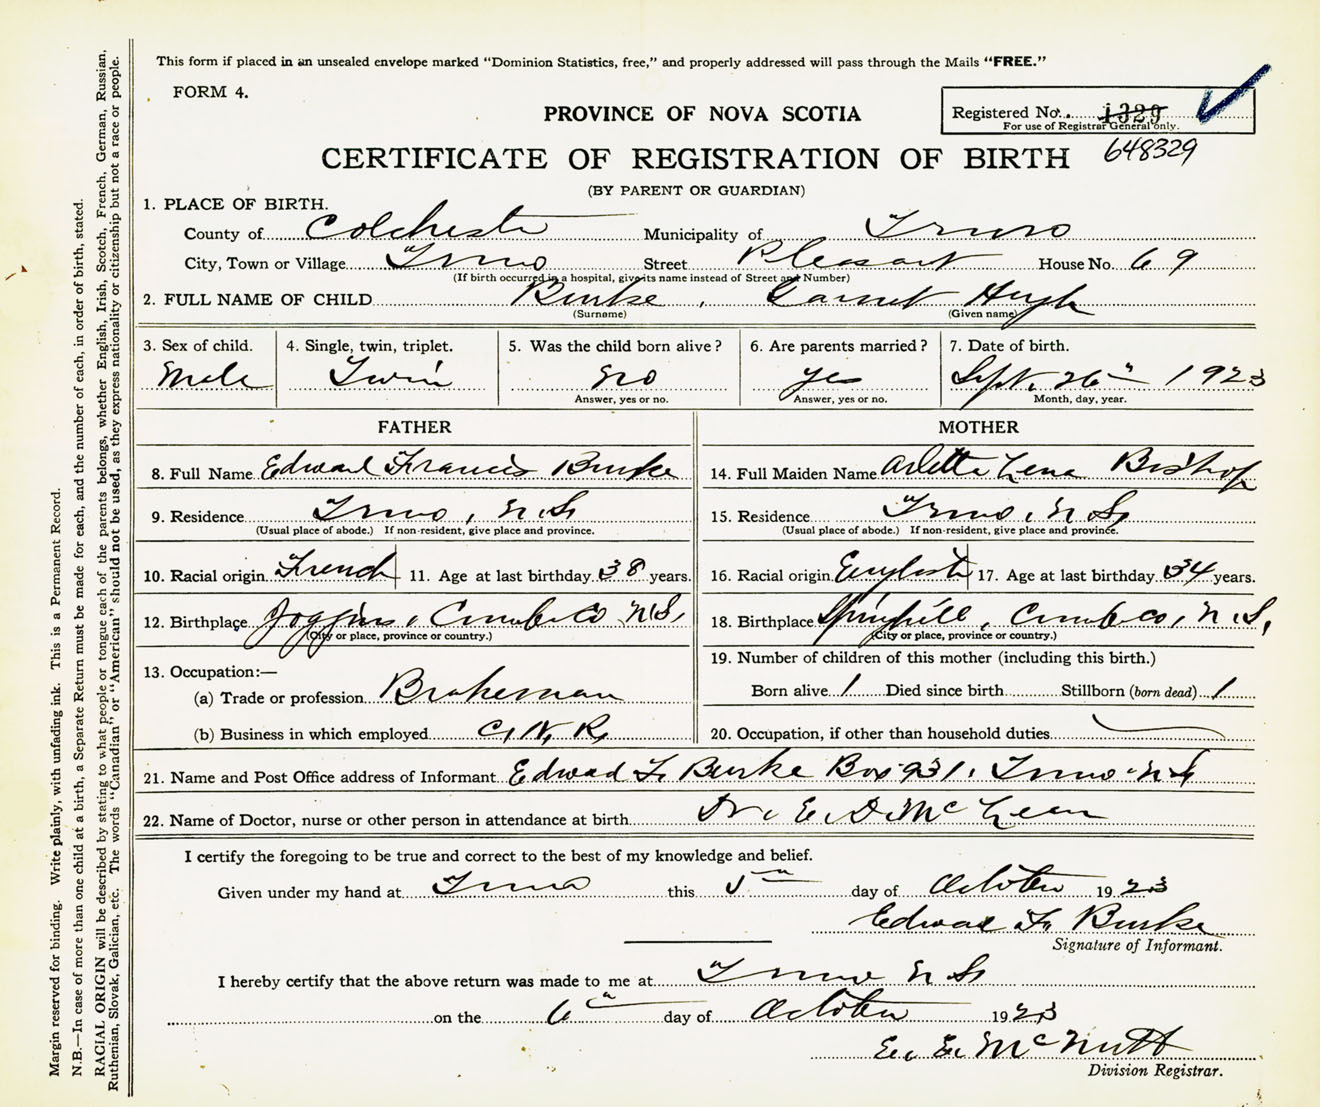 This form if placed in an unsealed envelope marked "Dominion Statistics, free," and properly addressed will pass through the Mails "FREE."
FORM 4.
PROVINCE OF NOVA SCOTIA
Registered No. 1329
For use of Registrar General only.
CERTIFICATE OF REGISTRATION OF BIRTH 648329
(BY PARENT OR GUARDIAN)
1. PLACE OF BIRTH.
County of Colchester Municipality of Truro
City, Town or Village Truro Street Pleasant House No. 69
(If birth occurred in a hospital, give its name instead of Street and Number)
2. FULL NAME OF CHILD Burke, Garnet Hugh
(Surname) (Given name)
3. Sex of child. 4. Single, twin, triplet. 5. Was the child born alive? 6. Are parents married? 7. Date of birth.
Male Twin No yes Sept. 26th 1923
Answer, yes or no. Answer, yes or no. Month, day, year.
FATHER MOTHER
8. Full Name Edward Francis Burke 14. Full Maiden Name Arletta Lena Bishop
9. Residence Truro, N.S. 15. Residence Truro, N.S.
(Usual place of abode.) If non-resident, give place and province. (Usual place of abode.) If non-resident, give place and province.
10. Racial origin French 11. Age at last birthday 38 years. 16. Racial origin English 17. Age at last birthday 34 years.
12. Birthplace Joggins, Cumb. Co N.S. 18. Birthplace Springhill, Cumb. Co, N.S.
(City or place, province or country.) (City or place, province or country.)
13. Occupation:— 19. Number of children of this mother (including this birth.)
(a) Trade or profession Brakeman Born alive 1 Died since birth Stillborn (born dead) 1
(b) Business in which employed C.N.R. 20. Occupation, if other than household duties
21. Name and Post Office address of Informant Edward F. Burke Box 931, Truro N.S
22. Name of Doctor, nurse or other person in attendance at birth Dr. E. D. McLean
I certify the foregoing to be true and correct to the best of my knowledge and belief.
Given under my hand at Truro this 5th day of October 1923
Edward F. Burke
Signature of Informant.
I hereby certify that the above return was made to me at Truro N.S.
on the 6th day of October 1923
E. E. McNutt
Division Registrar.
Margin reserved for binding. Write plainly, with unfading ink. This is a Permanent Record.
N.B.—In case of more than one child at a birth, a Separate Return must be made for each, and the number of each, in order of birth, stated.
RACIAL ORIGIN will be described by stating to what people or tongue each of the parents belongs, whether English, Irish, Scotch, French, German, Russian,
Ruthenian, Slovak, Galician, etc. The words "Canadian" or "American" should not be used, as they express nationality or citizenship but not a race or people.